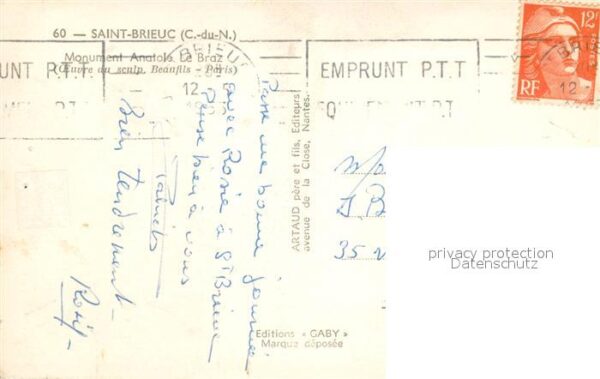 60 — SAINT-BRIEUC (C.-du-N.)
Monument Anatole Le Braz
(Œuvre du sculp. Beaufils - Paris)
BRIEUC
12
UNT P.T.T
EMPRUNT P.T.T
BRIE
12 -
12F
RF
Passe une bonne journée
avec Rosie à St Brieuc
Pense bien à vous
Bien tendrement
ARTAUD père et fils, Editeurs
avenue de la Close, Nantes.
35
privacy protection
Datenschutz
Editions « GABY »
Marque déposée